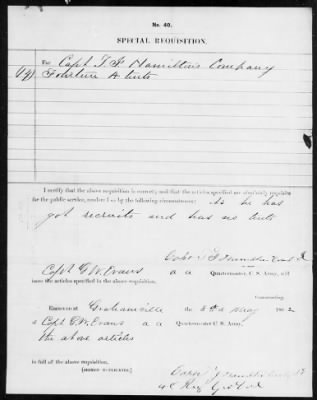 No. 40.
SPECIAL REQUISITION.
For Capt T. F. Hamiltons Company
(14) Fourteen A tents
I certify that the above requisition is correct; and that the articles specified are absolutely requisite
for the public service, rendered so by the following circumstances: As he has
got recruits and has no tents
Capt G. W. Evans a a Quartermaster, U. S. Army, will
issue the articles specified in the above requisition.
Commanding.
Received at Grahamville the 8th of May 1862
of Capt G. W. Evans a a Quartermaster U. S. Army,
the above articles
in full of the above requisition.
(SIGNED DUPLICATES.)